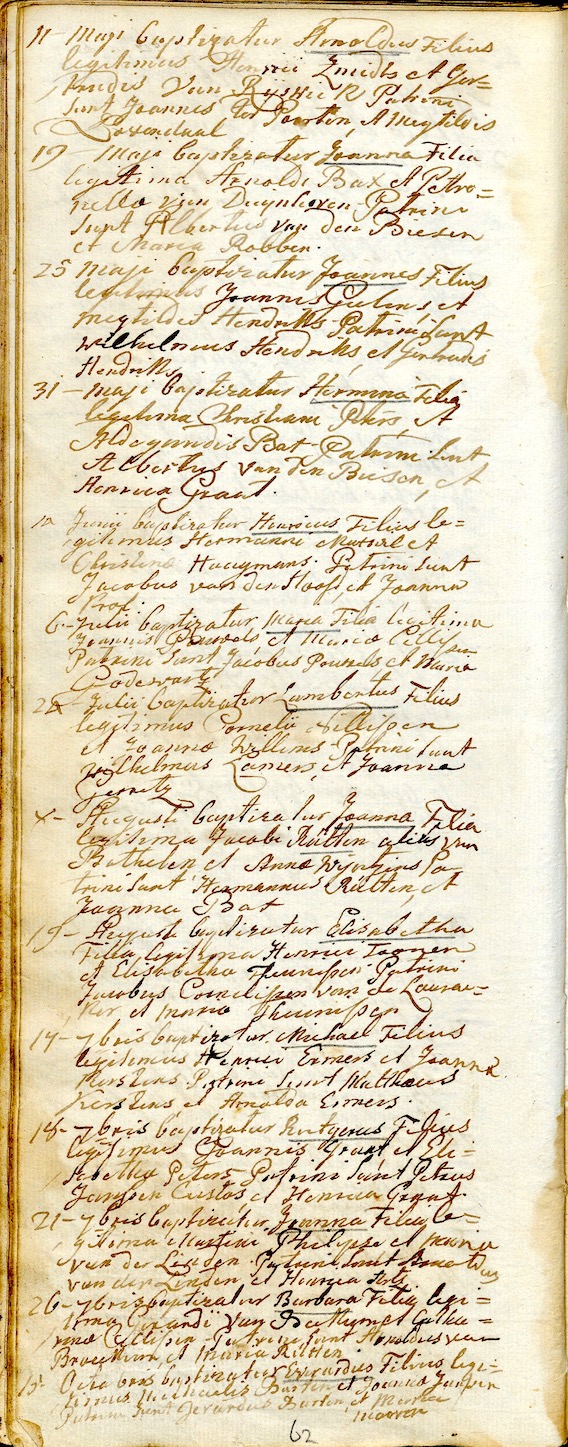 11 - Maji baptizatur Arnoldus Filius
legitimus Henrici Zmidts et Ger=
trudis Van Ryswic Patrini
sunt Joannes ter Poorten, et Megtildis
Loxendaal
19 - Maji baptizatur Joanna Filia
legitima Arnoldi Bax et Petro=
nella van Duynhoven Patrini
sunt Albertus van den Biesen
et Maria Robben.
25 Maji baptizatur Joannes Filius
legitimus Joannis Gielens et
Megtildis Hendriks Patrini sunt
Wilhelmus Hendriks et Gertrudis
Hendriks
31 - Maji baptizatur Hermina Filia
legitima Christiani Peters, et
Aldegundis Bat Patrini sunt
Albertus van den Biesen, et
Henrica Graat.
10 Junii baptizatur Henricus Filius le=
gitimus Hermanni et
Christina Huaymans. Patrini sunt
Jacobus van der Hoof, et Joanna
6 - Julii baptizatur Maria Filia legitima
Joannis Pouwels et Maria Cillissen
Patrini sunt Jacobus Pouwels et Maria
Godswarts
28 - Julii baptizatur Lambertus Filius
legitimus Cornelii Nillissen
et Joanna Willems Patrini sunt
Wilhelmus Lamers, et Joanna
Gerrits
x - Augusti baptizatur Joanna Filia
legitima Jacobi Rutten alias van
Bathelen et Anna Wyntjens Pa
trini sunt Hermannus Rutten, et
Joanna Bat
13 - Augusti baptizatur Elisabetha
Filia legitima Henrici Toonen
et Elisabetha Theunissen Patrini
Jacobus Cornelissen van de Laurac=
ker et Maria Theunissen
14 - 7bris baptizatur Michael Filius
legitimus Henrici Ermers et Joanna
Kerstens Patrini sunt Matthaeus
Kerstens et Arnolda Ermers.
18 - 7bris baptizatur Rutgerus Filius
legitimus Joannis Graat et Eli=
sabetha Peters Patrini sunt Petrus
Janssen Custos et Henrica Graat
21 - 7bris baptizatur Joanna Filia le=
gitima Martini Philipse et Maria
van der Linden Patrini sunt
van der Linden, et Henrica
26 - 7bris baptizatur Barbara Filia legi=
tima Gerardi van et Catha=
rina Cillissen Patrini sunt Arnoldus van
et Maria Rutten
15 - Octobris baptizatur Everardus Filius legi=
timus Michaelis Barten et Joanna Janssen
Patrini sunt Gerardus Barten, et Maria
62